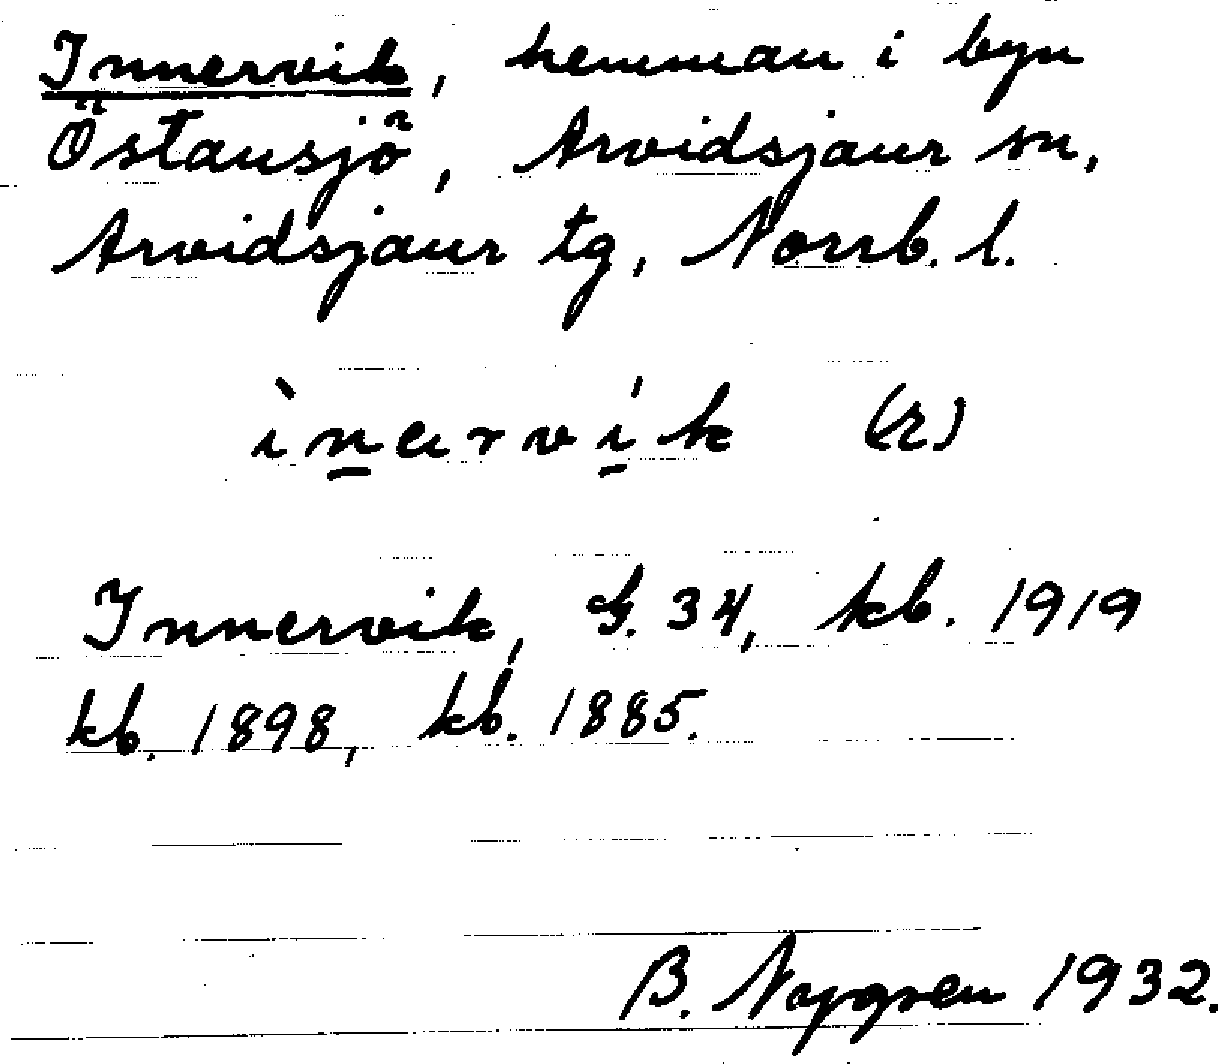 Innervik, hemman i byn
Östansjö, Arvidsjaur sn,
Arvidsjaur tg, Norrb. l.
ìn̠ərvi̠k (2)
Innervik, G. 34, kb. 1919
kb. 1898, kb. 1885.
B. Nygren 1932.